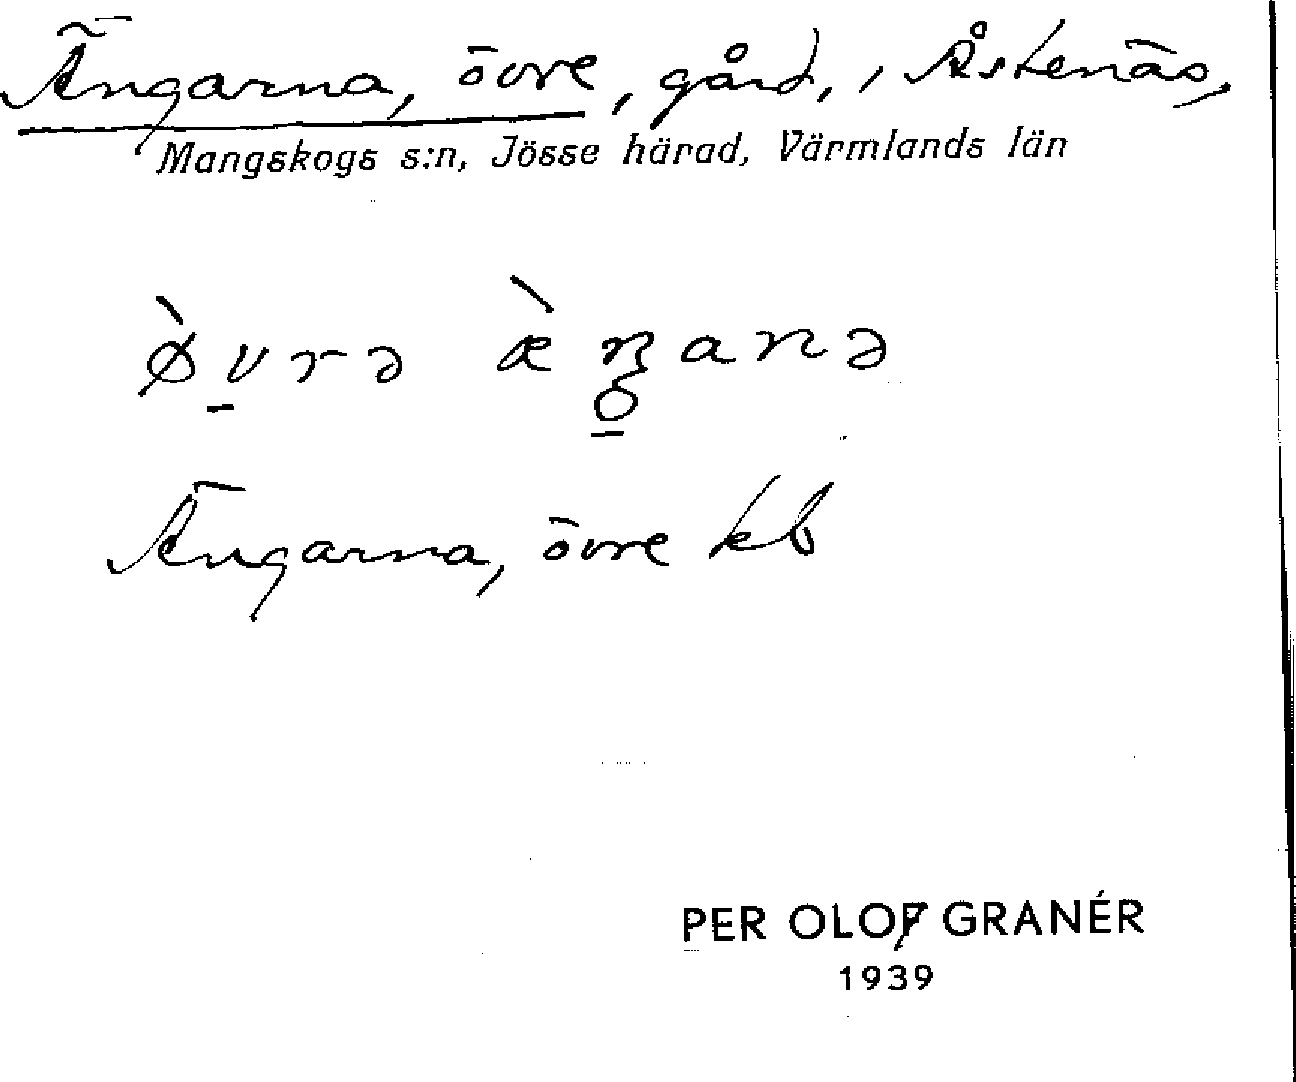 Ängarna, övre, gård, i Åstenäs,
Mangskogs s:n, Jösse härad, Värmlands län
ø̀v̠rə æ̀ŋ̠anə
Ängarna, övre kb
PER OLOF GRANÉR
1939